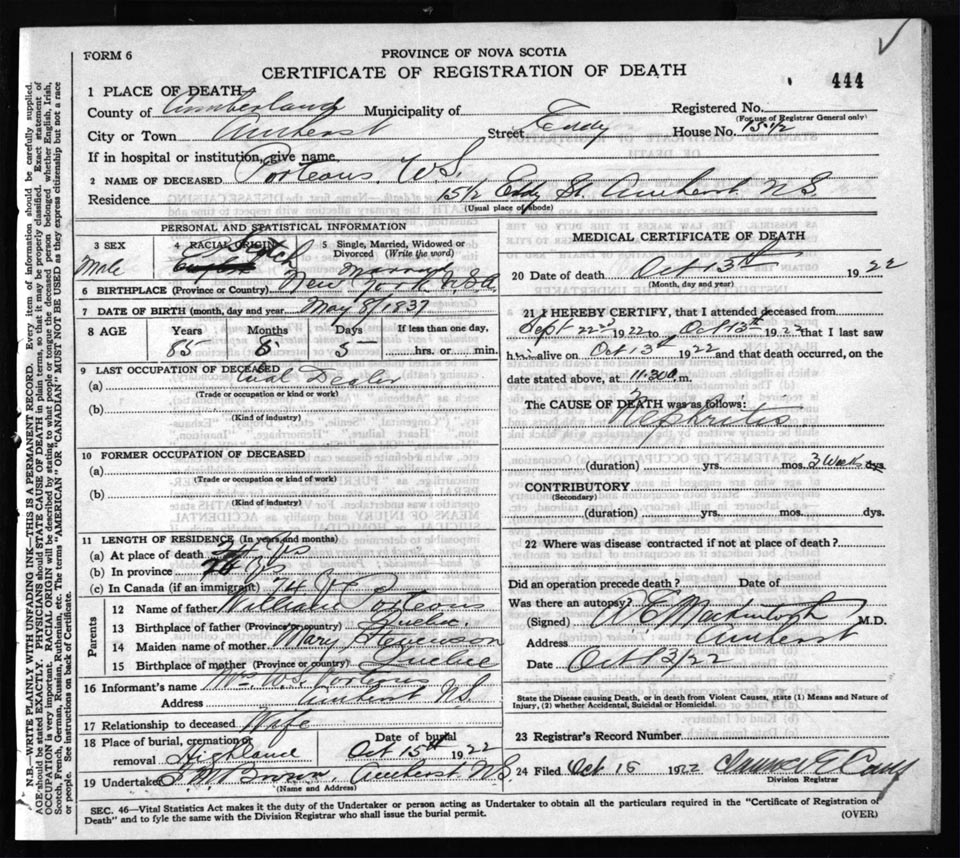 FORM 6
PROVINCE OF NOVA SCOTIA
CERTIFICATE OF REGISTRATION OF DEATH
444
1 PLACE OF DEATH
County of Cumberland Municipality of Registered No.
(For use of Registrar General only)
City or Town Amherst Street Eddy House No. 15 1/2
If in hospital or institution, give name
2 NAME OF DECEASED Porteous, W.S.
Residence 15 1/2 Eddy St. Amherst NS
(Usual place of abode)
PERSONAL AND STATISTICAL INFORMATION
3 SEX 4 RACIAL ORIGIN 5 Single, Married, Widowed or Divorced (Write the word)
Male Scotch Married
6 BIRTHPLACE (Province or Country) New York U.S.A.
7 DATE OF BIRTH (month, day and year) May 8/1837
8 AGE Years Months Days If less than one day,
85 5 5 hrs. or min.
9 LAST OCCUPATION OF DECEASED
(a) Coal Dealer
(Trade or occupation or kind or work)
(b)
(Kind of industry)
10 FORMER OCCUPATION OF DECEASED
(a)
(Trade or occupation or kind of work)
(b)
(Kind of industry)
11 LENGTH OF RESIDENCE (In years and months)
(a) At place of death yrs
(b) In province yrs
(c) In Canada (if an immigrant) 74
Parents
12 Name of father William Porteous
13 Birthplace of father (Province or country) Quebec
14 Maiden name of mother Mary Stevenson
15 Birthplace of mother (Province or country) Quebec
16 Informant's name Mrs. W.S. Porteous
Address Amherst NS
17 Relationship to deceased Wife
18 Place of burial, cremation or removal Highland Date of burial Oct 15th 1922
19 Undertaker Brown, Amherst, N.S.
(Name and Address)
MEDICAL CERTIFICATE OF DEATH
20 Date of death Oct 13th 1922
(Month, day and year)
21 I HEREBY CERTIFY, that I attended deceased from
Sept 22nd 1922 to Oct 13th 1922 that I last saw
him alive on Oct 13th 1922 and that death occurred, on the
date stated above, at 11.30 m.
The CAUSE OF DEATH was as follows:
Nephritis
(duration) yrs. mos. 3 Weeks dys.
CONTRIBUTORY
(Secondary)
(duration) yrs. mos. dys.
22 Where was disease contracted if not at place of death?
Did an operation precede death? Date of
Was there an autopsy?
(Signed) Mackintosh M.D.
Address Amherst
Date Oct 13/22
State the Disease causing Death, or in death from Violent Causes, state (1) Means and Nature of
Injury, (2) whether Accidental, Suicidal or Homicidal.
23 Registrar's Record Number
24 Filed Oct 15 1922
Division Registrar
SEC. 46—Vital Statistics Act makes it the duty of the Undertaker or person acting as Undertaker to obtain all the particulars required in the "Certificate of Registration of
Death" and to fyle the same with the Division Registrar who shall issue the burial permit.
(OVER)
N.B.—WRITE PLAINLY WITH UNFADING INK—THIS IS A PERMANENT RECORD. Every item of information should be carefully supplied.
AGE should be stated EXACTLY. PHYSICIANS should STATE CAUSE OF DEATH in plain terms, so that it may be properly classified. Exact statement of
OCCUPATION is very important. RACIAL ORIGIN will be described by stating to what people or tongue the deceased person belonged whether English, Irish,
Scotch, French, German, Russian, Ruthenian, etc. The terms "AMERICAN" OR "CANADIAN" MUST NOT BE USED as they express citizenship but not a race
or people. See instructions on back of Certificate.